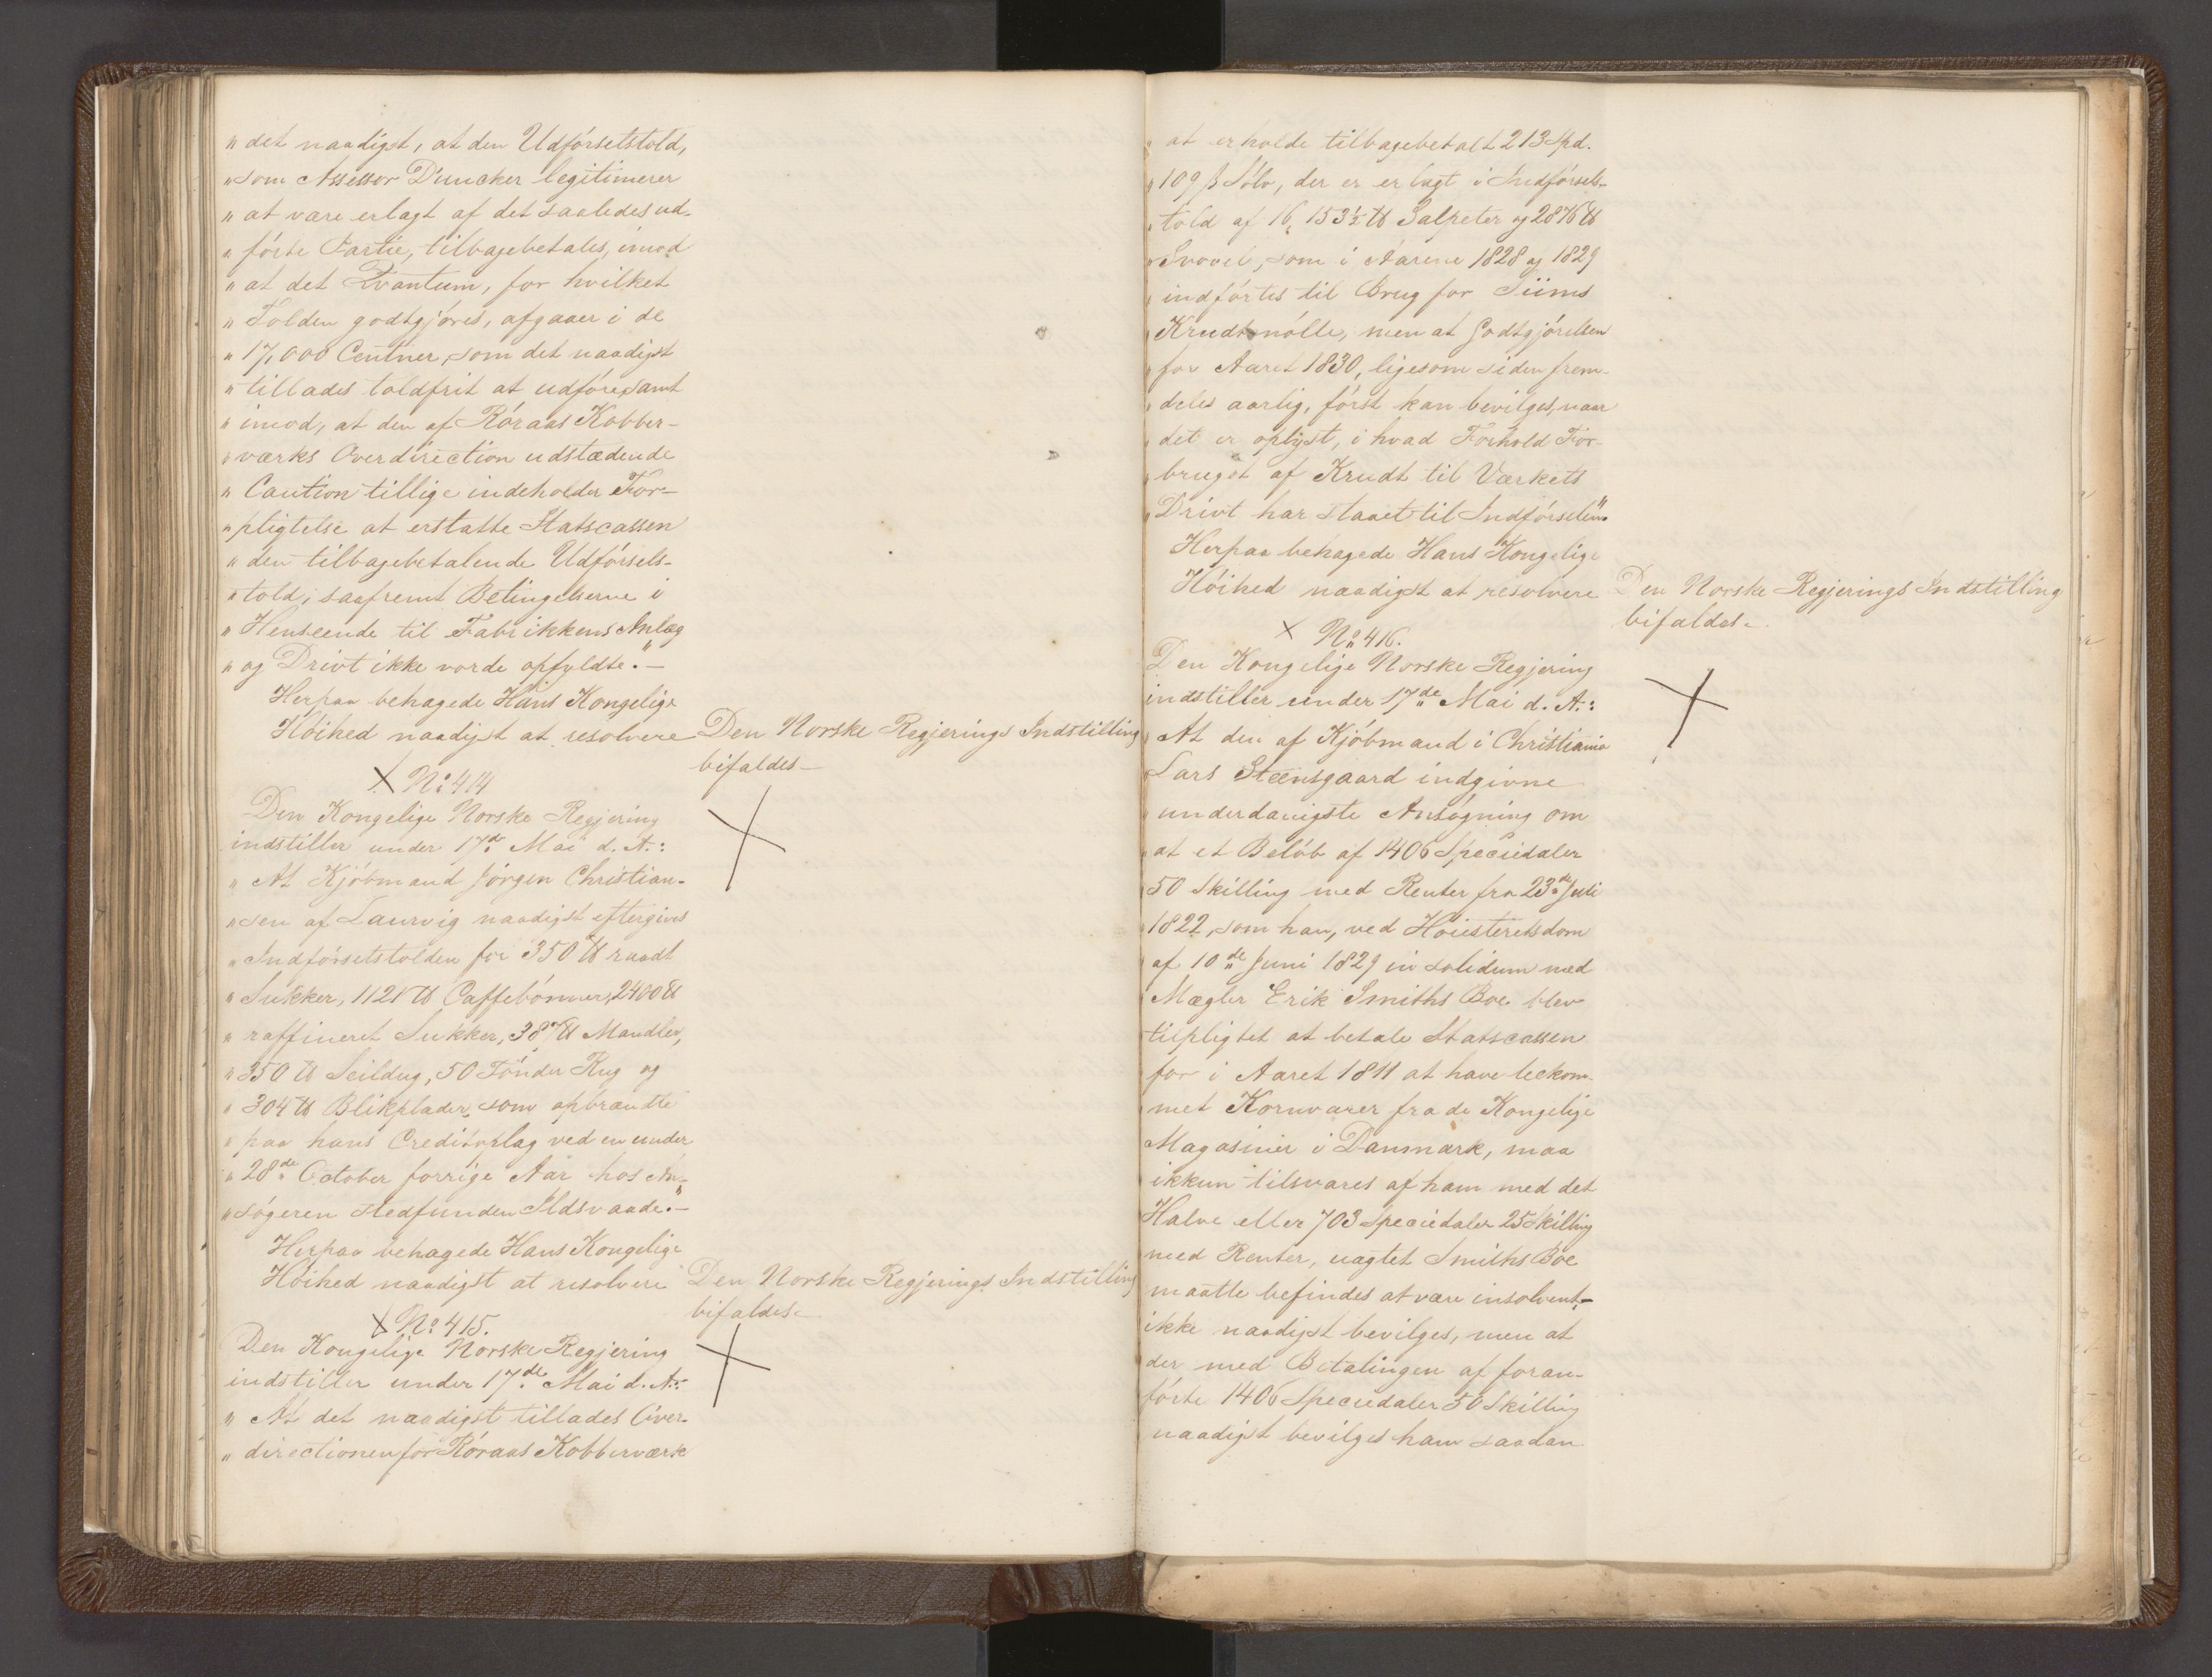 " det naadigst, at den Udførselstold,
" som Assessor Duncker legitimerer
" at være erlagt af det saaledes ud-
" førte Partie, tilbagebetales, imod
" at det Qvantum, for hvilket
" Tolden godtgjøres, afgaaer i de
" 17,000 Centner, som det naadigst
" tillades toldfrit at udføre, samt
" imod, at den af Røraas Kobber-
" værks Overdirection udstædende
" Caution tillige indeholder For-
" pligtelse at erstatte Statscassen
" den tilbagebetalende Udførsels-
" told, saafremt Betingelserne i
" Henseende til Fabrikkens Anlæg
" og Drivt ikke vorde opfyldte." -
Herpaa behagede Hans Kongelige
Høihed naadigst at resolvere
Den Norske Regjerings Indstilling
bifaldes -
X No 414
Den Kongelige Norske Regjering
indstiller under 17de Mai d. A.:
" At Kjøbmand Jørgen Christian-
" sen af Laurvig naadigst eftergives
" Indførselstolden for 350 ℔ raadt
" Sukker, 1121 ℔ Caffebønner, 2400 ℔
" raffineret Sukker, 387 ℔ Mandler,
" 350 ℔ Seildug, 50 Tønder Rug og
" 304 ℔ Blikplader, som opbrændte
" paa hans Creditoplag ved en under
" 28de October forrige Aar hos An-
" søgeren stedfunden Ildsvaade." -
Herpaa behagede Hans Kongelige
Høihed naadigst at resolvere
Den Norske Regjerings Indstilling
bifaldes -
X No 415.
Den Kongelige Norske Regjering
indstiller under 17de Mai d. A.:
" At det naadigst tillades Over-
" directionen for Røraas Kobberværk
" at erholde tilbagebetalt 213 Spd.
" 109 ß Sølv, der er erlagt i Indførsels-
" told af 16,153½ ℔ Salpeter og 2876 ℔
" Svovel, som i Aarene 1828 og 1829
" indførtes til Brug for Siims
" Krudtmølle, men at Godtgjørelsen
" for Aaret 1830, ligesom siden frem-
" deles aarlig, først kan bevilges, naar
" det er oplyst, i hvad Forhold For-
" bruget af Krudt til Værkets
" Drivt har staaet til Indførselen"
Herpaa behagede Hans Kongelige
Høihed naadigst at resolvere
Den Norske Regjerings Indstilling
bifaldes -
X No 416.
Den Kongelige Norske Regjering
indstiller under 17de Mai d. A.:
" At den af Kjøbmand i Christiania
" Lars Steensgaard indgivne
" underdanigste Ansøgning om
" at et Beløb af 1406 Speciedaler
50 Skilling med Renter fra 23de Juli
1822, som han, ved Høiesteretsdom
af 10de Juni 1829 in solidum med
Mægler Erik Smiths Boe blev
tilpligtet at betale Statscassen
for i Aaret 1811 at have bekom-
met Kornvarer fra de Kongelige
Magasiner i Danmark, maa
ikkun tilsvares af ham med det
Halve eller 703 Speciedaler 25 Skilling
med Renter, uagtet Smiths Boe
maatte befindes at være insolvent, -
ikke naadigst bevilges, men at
der med Betalingen af foran-
førte 1406 Speciedaler 50 Skilling
naadigst bevilges ham saadan